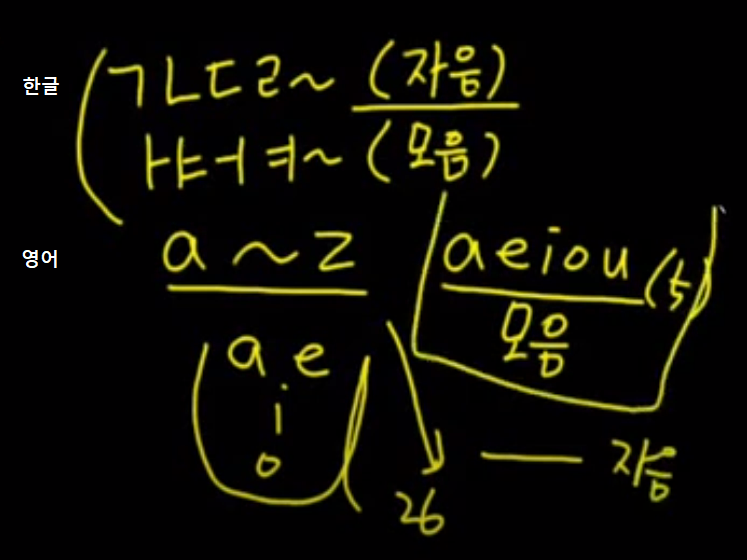 한글 ㄱㄴㄷㄹ~ (자음)
ㅏㅑㅓㅕ~ (모음)
영어 a ~ z aeiou (5)
모음
a e
i
o
26 — 자음